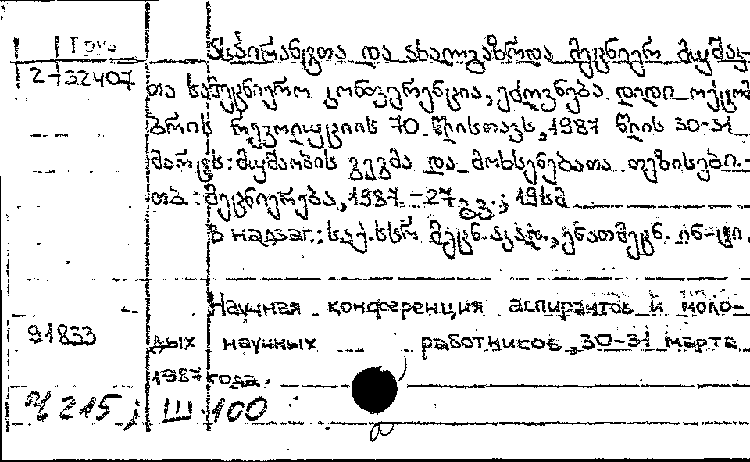 Груз
2-32407
ასპირანტთა და ახალგაზრდა მეცნიერ მუშაკ-
თა სამეცნიერო კონფერენცია, ეძღვნება დიდი ოქტომ
ბრის რევოლუციის 70 წლისთავს, 1987 წლის 30-31
მარტს: მუშაობის გეგმა და მოხსენებათა თეზისები. -
თბ.: მეცნიერება, 1987. - 27 გვ.; 19სმ
В надзаг.: საქ. სსრ მეცნ. აკად., ენათმეცნ. ინ-ტი.
Научная конференция аспирантов и моло-
91833 дых научных работников, 30-31 марта
1987 года.
Ч 215; Ш 100